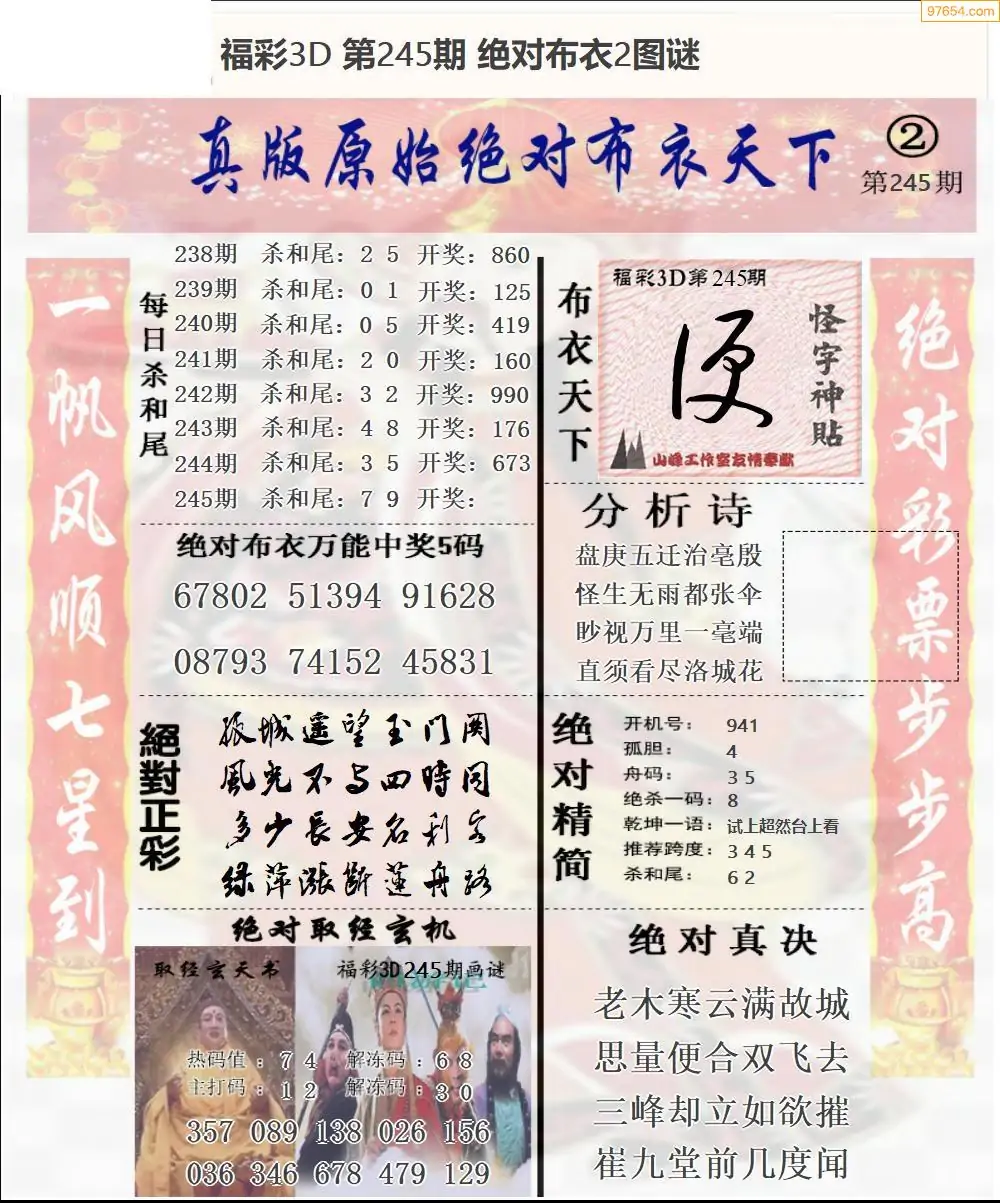 97654.com
福彩3D 第245期 绝对布衣2图谜
真版原始绝对布衣天下
②
第245期
一帆风顺七星到
每日杀和尾
238期 杀和尾：2 5 开奖：860
239期 杀和尾：0 1 开奖：125
240期 杀和尾：0 5 开奖：419
241期 杀和尾：2 0 开奖：160
242期 杀和尾：3 2 开奖：990
243期 杀和尾：4 8 开奖：176
244期 杀和尾：3 5 开奖：673
245期 杀和尾：7 9 开奖：
绝对布衣万能中奖5码
67802 51394 91628
08793 74152 45831
絕對正彩
孤城遥望玉门関
風光不与四時同
多少長安名利客
绿萍涨断莲舟路
绝对取经玄机
取经玄天书
福彩3D245期画谜
热码值：7 4 解冻码：6 8
主打码：1 2 解冻码：3 0
357 089 138 026 156
036 346 678 479 129
布衣天下
福彩3D第245期
便
怪字神貼
山峰工作室友情奉献
分析诗
盘庚五迁治亳殷
怪生无雨都张伞
眇视万里一毫端
直须看尽洛城花
绝对精简
开机号： 941
孤胆： 4
舟码： 3 5
绝杀一码：8
乾坤一语：试上超然台上看
推荐跨度：3 4 5
杀和尾： 6 2
绝对真决
老木寒云满故城
思量便合双飞去
三峰却立如欲摧
崔九堂前几度闻
绝对彩票步步高